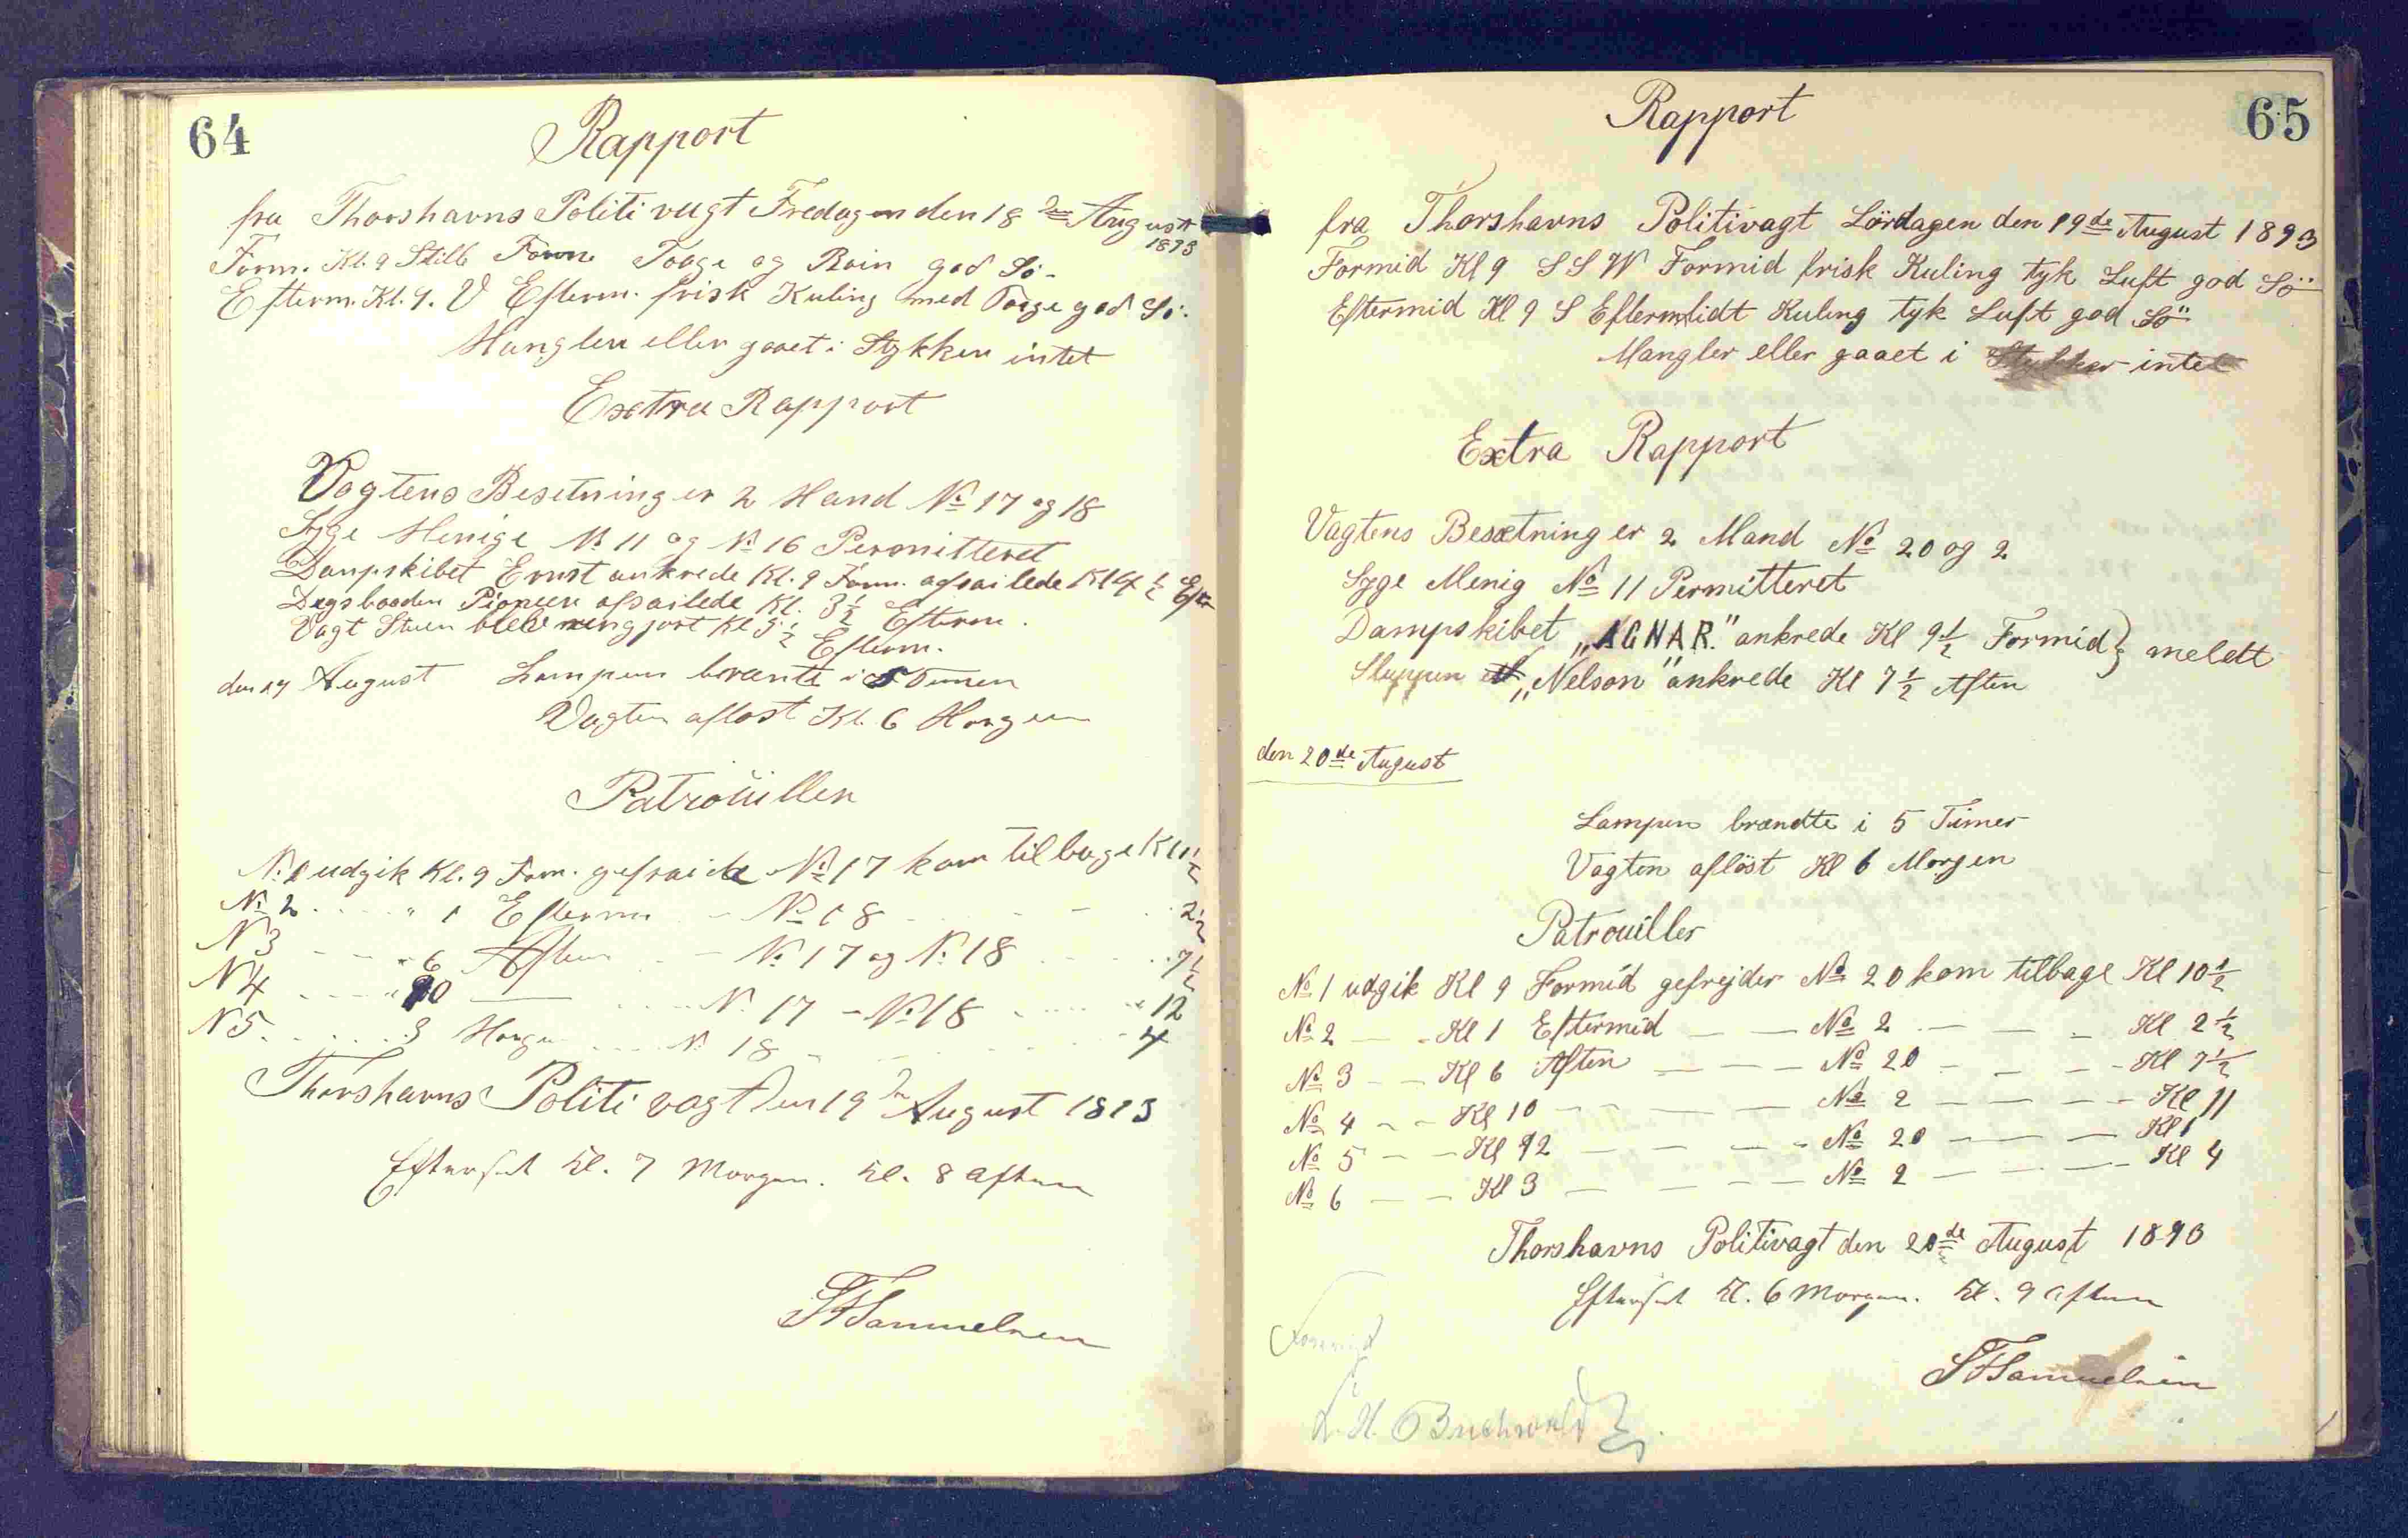 64
Rapport
fra Thorshavns Politi vagt Fredagen den 18 de August
1893
Form. Kl. 9 Stille Form. Taage og Rein god Sö-
Efterm. Kl. 9. V Efterm. frisk Kuling med Taage god Sö.
Mangler eller gaaet i Stykker intet
Extra Rapport
Vagtens Besetning er 2 Mand No 17 og 18
Syge Menige No 11 og No 16 Permitteret
Dampskibet Ernst ankrede Kl. 9 Form. afsailede Kl 4 1/2 Eft
Degsbaaden Pioneer afsailede Kl. 3 1/2 Efterm.
Vagt Stuen blev rengjort Kl 5 1/2 Efterm.
den 19 August Lampen brænte i 5 Timer
Vagten aflöst Kl. 6 Morgen
Patroüiller
No 1 udgik Kl. 9 Form. gefraider No 17 kom tilbage Kl 1/2
No 2 " 1 Efterm - No 18 2 1/2
N 3 " 6 Aften - No 17 og No 18 7 1/2
N 4 " 10 No 17 - No 18 " 12
N 5 3 Morgen N 18 4
Thorshavns Politi vagt den 19 de August 1893
Efterset Kl. 7 Morgen. Kl. 8 Aften
Samuelsen
65
Rapport
fra Thorshavns Politivagt Lördagen den 19de August 1893
Formid Kl 9 S S W Formid frisk Kuling tyk Luft god Sö
Eftermid Kl 9 S Eftermidt Kuling tyk Luft god Sö
Mangler eller gaaet i Stykker intet
Extra Rapport
Vagtens Besætning er 2 Mand No 20 og 2
Syge Menig No 11 Permitteret
Dampskibet „AGNAR." ankrede Kl 9 1/2 Formid } meldt
Sluppen „Nelson" ankrede Kl 7 1/2 Aften
den 20de August
Lampen brændte i 5 Timer
Vagten aflöst Kl 6 Morgen
Patrouiller
No 1 udgik Kl 9 Formid gefrejder No 20 kom tilbage Kl 10 1/2
No 2 - - Kl 1 Eftermid - - No 2 - - - Kl 2 1/2
No 3 - - Kl 6 Aften - - - No 20 - - - - Kl 7 1/2
No 4 - - Kl 10 - - - - No 2 - - - - Kl 11
No 5 - - Kl 12 - - - - No 20 - - - Kl 1
No 6 - - Kl 3 - - - - No 2 - - - - Kl 4
Thorshavns Politivagt den 20de August 1893
Efterset Kl. 6 Morgen. Kl. 9 Aften
Samuelsen
Formid
Buchwald